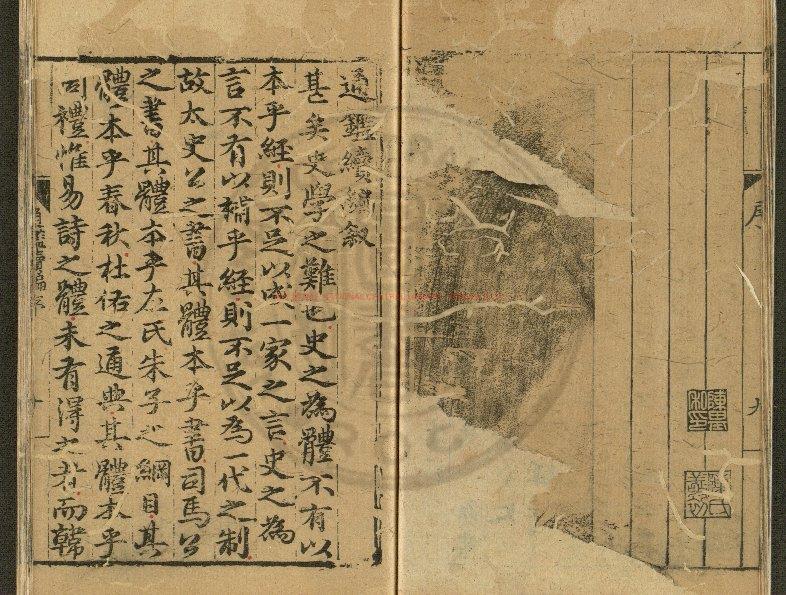 序
九
通鑑續編叙
甚矣史學之難也史之為體不有以
本乎經則不足以成一家之言史之為
言不有以補乎經則不足以為一代之制
故太史公之書其體本乎書司馬公
之書其體本乎左氏朱子之綱目其
體本乎春秋杜佑之通典其體本乎
周禮惟易詩之體未有得之者而韓